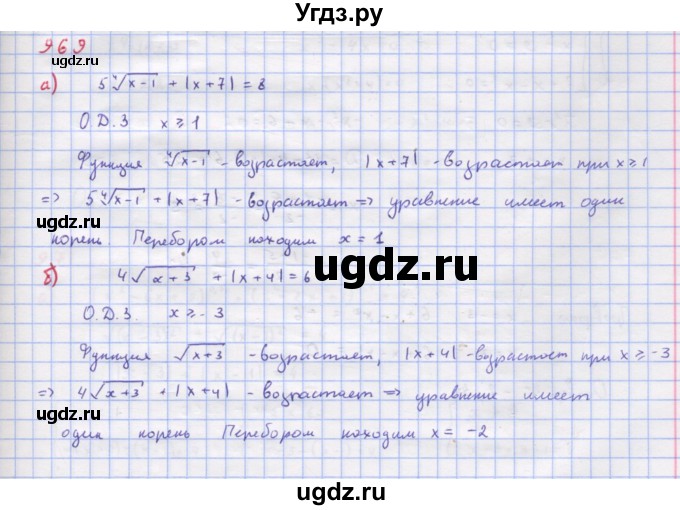 Угдз.ру
969
а) 5∜(x-1) + |x+7| = 8
О.Д.З x ≥ 1
Функция ∜(x-1) - возрастает, |x+7| - возрастает при x ≥ 1
=> 5∜(x-1) + |x+7| - возрастает => уравнение имеет один
ugdz.ru
корень Перебором находим x = 1
ugdz.ru
б) 4√(x+3) + |x+4| = 6
О.Д.З. x ≥ -3
Функция √(x+3) - возрастает, |x+4| - возрастает при x ≥ -3
ugdz.ru
ugdz.ru
=> 4√(x+3) + |x+4| - возрастает => уравнение имеет
один корень Перебором находим x = -2
ugdz.ru